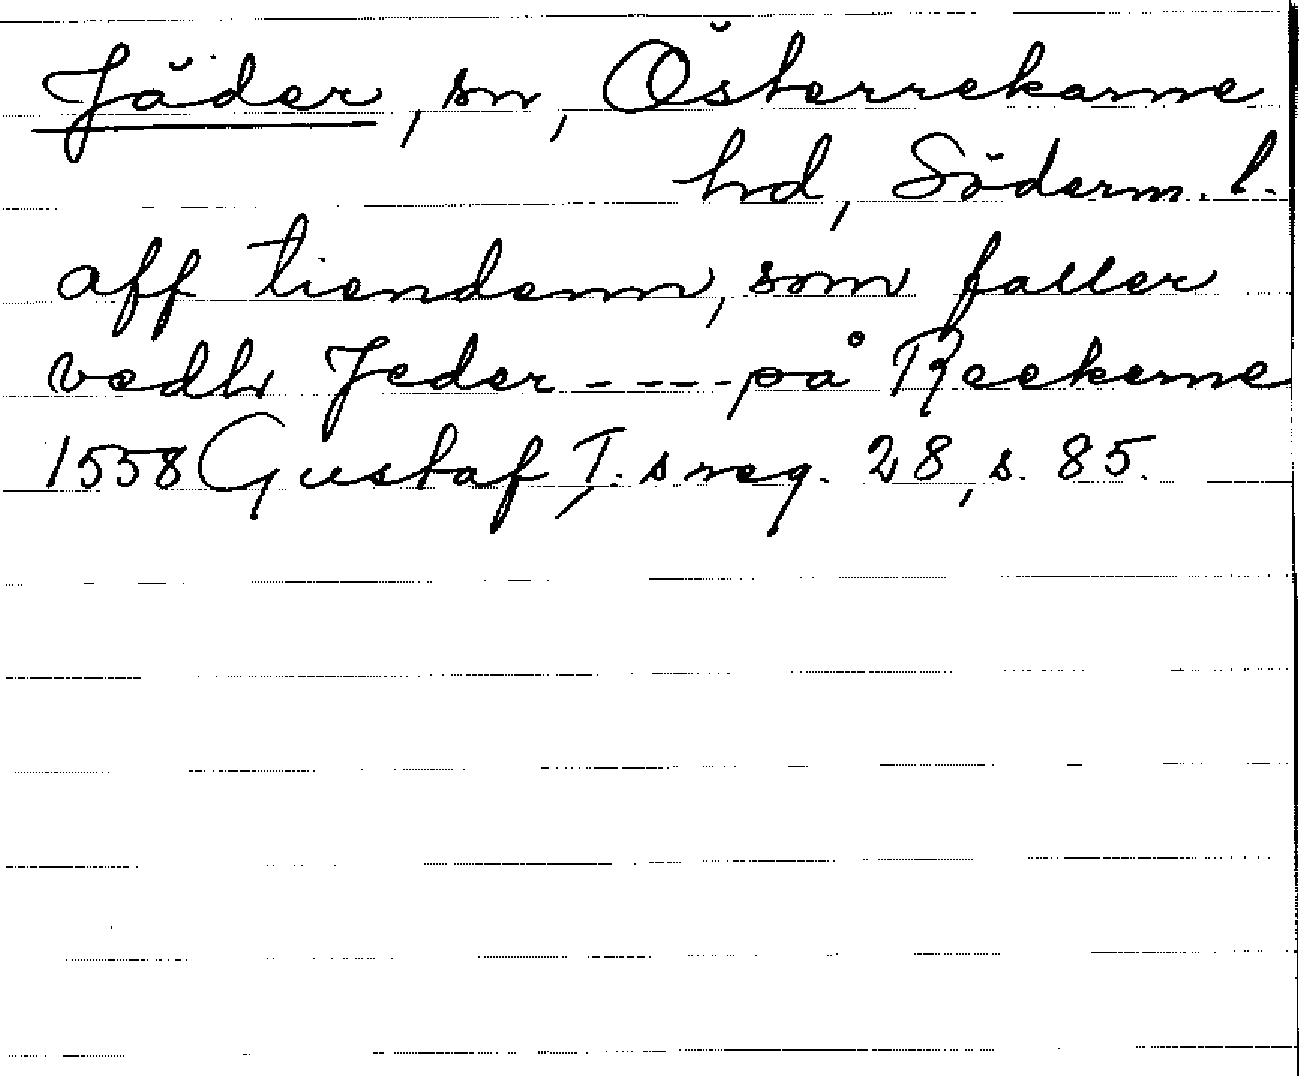 Jäder, sn, Österrekarne
hd, Söderm. l.
aff tiendenn, som faller
vedh Jeder - - - - på Reekerne
1558 Gustaf I. s reg. 28, s. 85.